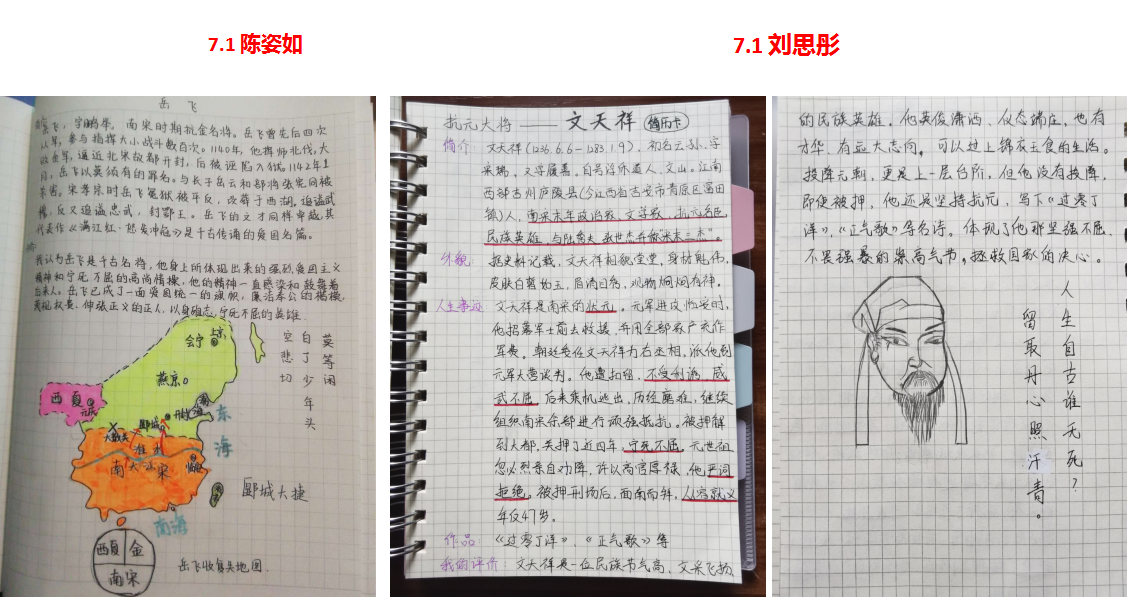 7.1 陈姿如
7.1 刘思彤
岳 飞
岳飞，字鹏举，南宋时期抗金名将。岳飞曾先后四次
从军，参与指挥大小战斗数百次。1140年，他挥师北伐，大
败金军，逼近北宋故都开封，后被诬陷入狱。1142年1
月，岳飞以莫须有的罪名，与长子岳云和部将张宪同被
杀害。宋孝宗时岳飞冤狱被平反，改葬于西湖，追谥武
穆，反又追谥忠武，封鄂王。岳飞的文才同样卓越，其
代表作《满江红·怒发冲冠》是千古传诵的爱国名篇。
我认为岳飞是千古名将，他身上所体现出来的强烈爱国主义
精神和宁死不屈的高尚情操，他的精神一直感染和鼓舞着
后来人。岳飞已成了一面爱国统一的旗帜，廉洁奉公的楷模，
蔑视权贵、伸张正义的正人，以身殉志，宁死不屈的英雄。
莫等闲
白了少年头
空悲切
会宁
上京
燕京
西夏
开封
郾城
大散关
淮水
南宋
临安
东海
南海
郾城大捷
西夏 金
南宋
岳飞收复失地图
抗元大将——文天祥 简历卡
简介 文天祥(1236.6.6—1283.1.9)，初名云孙，字
宋瑞，又字履善，自号浮休道人、文山。江南
西路吉州庐陵县(今江西省吉安市青原区富田
镇)人，南宋末年政治家、文学家，抗元名臣，
民族英雄，与陆秀夫、张世杰并称"宋末三杰"。
外貌 据史料记载，文天祥相貌堂堂，身材魁伟，
皮肤白皙如玉，眉清目秀，观物炯炯有神。
人生事迹 文天祥是南宋的状元。元军进攻临安时，
他招募军士前去救援，并用全部家产充作
军费。朝廷委任文天祥为右丞相，派他到
元军大营谈判。他遭扣留，不受利诱、威
武不屈。后来乘机逃出，历经磨难，继续
组织南宋余部进行顽强抵抗。被押解
到大都，关押了近四年，宁死不屈。元世祖
忽必烈亲自劝降，许以高官厚禄，他严词
拒绝。被押刑场后，面南而拜，从容就义
年仅47岁。
作品：《过零丁洋》、《正气歌》等
我的评价：文天祥是一位民族节气高，文采飞扬
的民族英雄。他英俊潇洒、仪态端庄，也有
才华，有远大志向，可以过上锦衣玉食的生活。
投降元朝，更是上一层台阶，但他没有投降，
即使被押，他还是坚持抗元，写下《过零丁
洋》、《正气歌》等名诗，体现了他那坚强不屈、
不畏强暴的崇高气节，拯救国家的决心。
人生自古谁无死？
留取丹心照汗青。